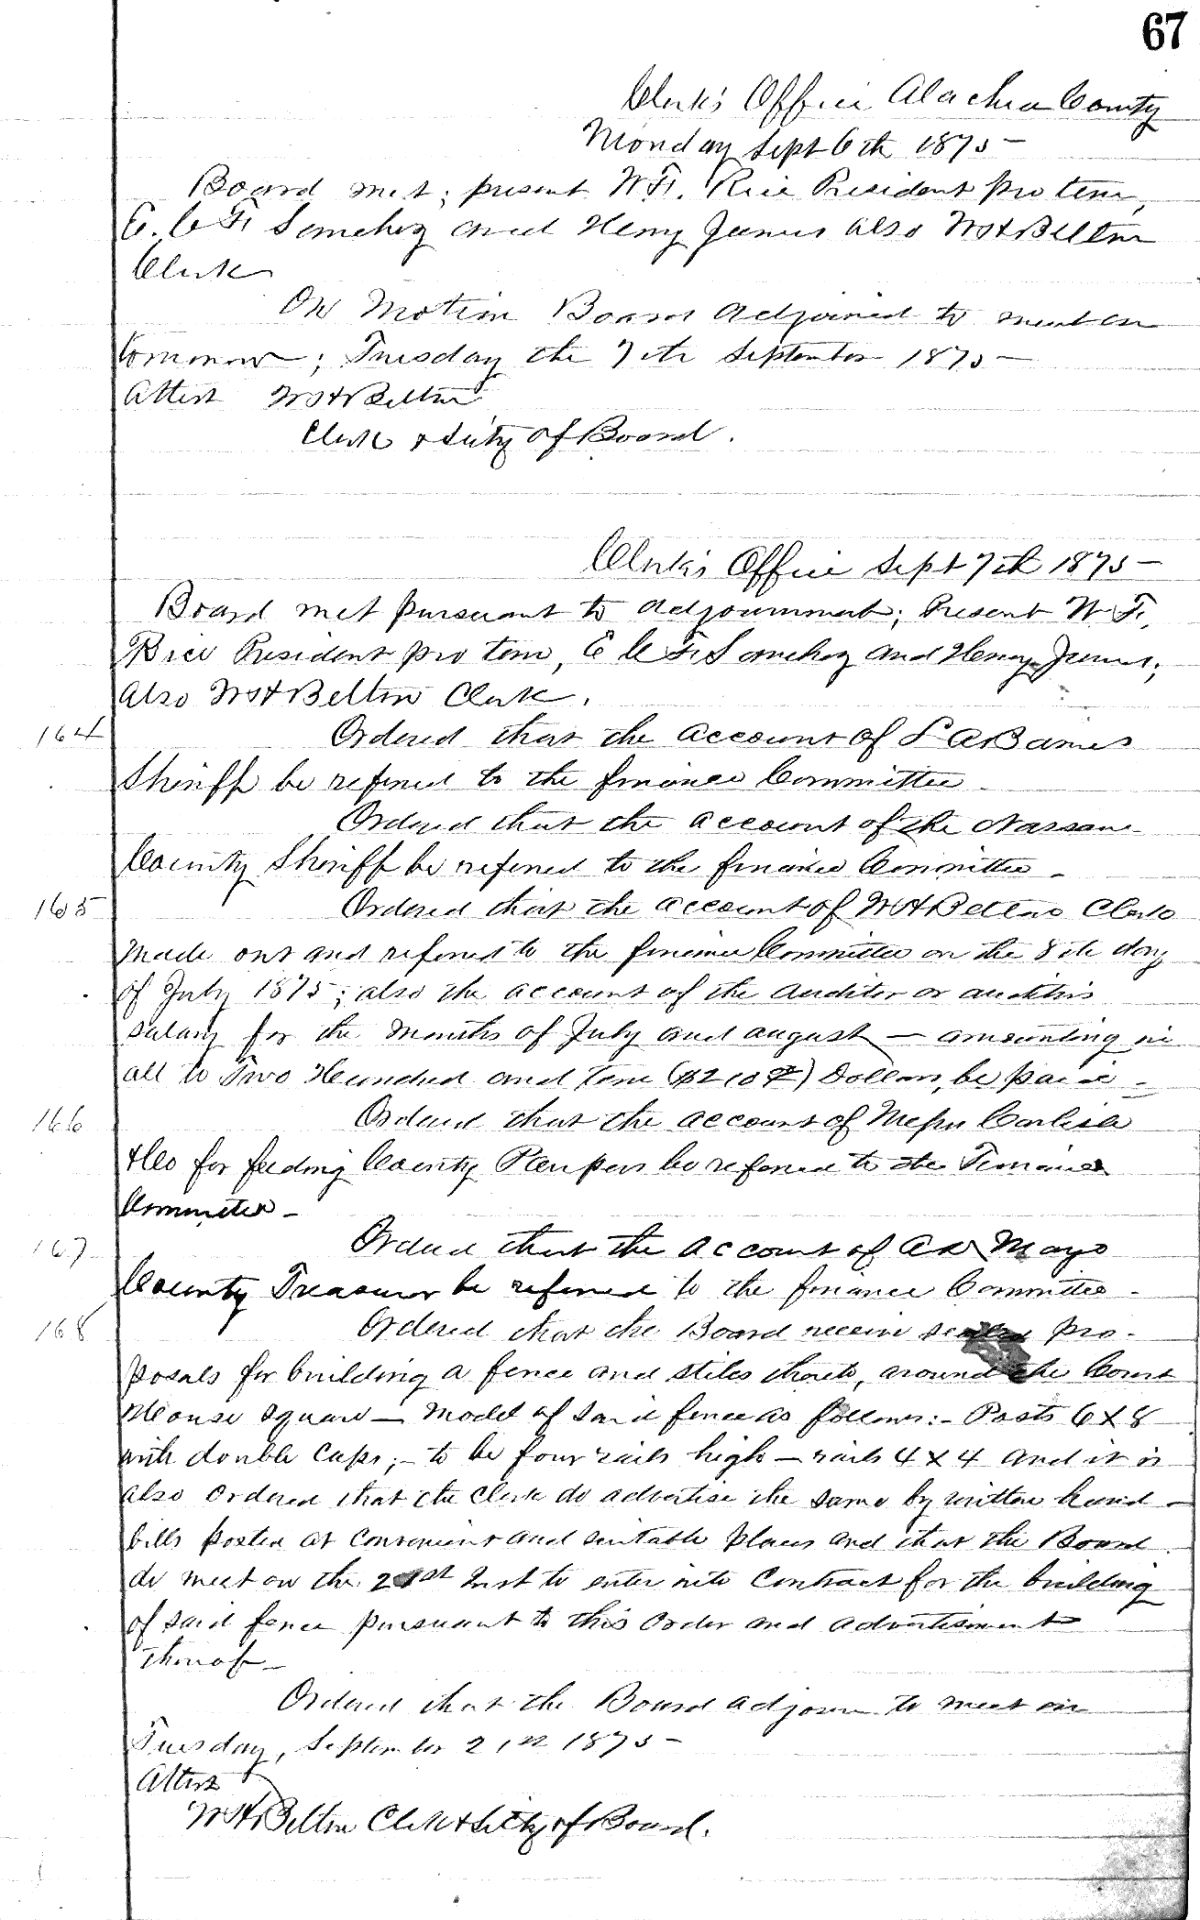 67
Clerk's Office Alachua County
Monday Sept 6th 1875 —
Board met; present W. F. Rice President pro tem,
E. C. F. Sanchez and Henry James also W H Belton
Clerk
On Motion Board adjoined to meet on
tomorrow; Tuesday the 7th September 1875 —
Attest W H Belton
Clerk & Sect'y of Board.
Clerk's Office Sept 7th 1875 —
Board met pursuant to adjournment; Present W. F.
Rice President pro tem, E C F Sanchez and Henry James;
also W H Belton Clerk.
164 Ordered that the account of L A Barnes
Sheriff be refered to the finance Committee
Ordered that the account of the Nassau
County Sheriff be refered to the finance Committee —
165 Ordered that the account of W H Belton Clerk
made out and refered to the finance Committee on the 8th day
of July 1875; also the account of the auditor or auditors
salary for the months of July and august — amounting in
all to Two Hundred and Ten ($210) Dollars, be paid —
166 Ordered that the account of Carlisle
& Co for feeding County Paupers be refered to the Finance
Committee —
167 Ordered that the account of Mayo
County Treasurer be refered to the finance Committee —
168 Ordered that the Board receive sealed pro-
posals for building a fence and stiles thereto, around the Court
House Square — Model of said fence as follows:- Posts 6 X 8
with double caps; — to be four rails high — rails 4 X 4 and it is
also ordered that the Clerk do advertise the same by written hand-
bills posted at convenient and suitable places and that the Board
do meet on the 21st Inst to enter into Contract for the building
of said fence pursuant to this order and advertisement
thereof —
Ordered that the Board adjourn to meet on
Tuesday, September 21st 1875 —
Attest
W H Belton Clerk & Sect'y of Board.